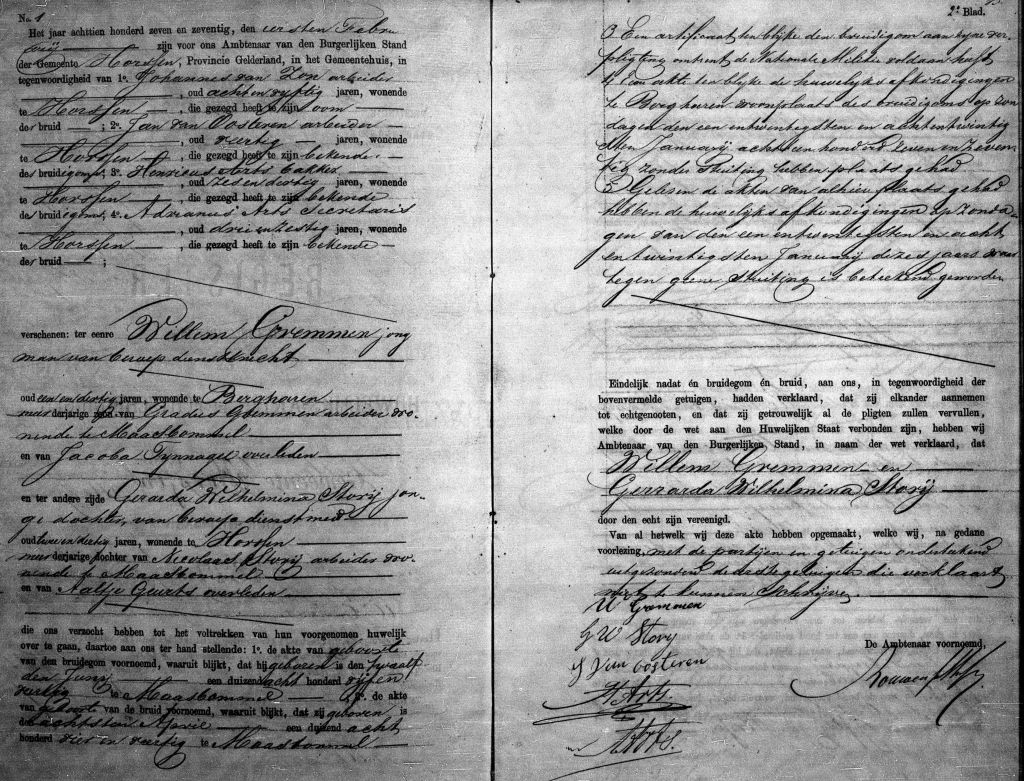 No. 1
Het jaar achttien honderd zeven en zeventig, den eersten Febru
arij zijn voor ons Ambtenaar van den Burgerlijken Stand
der Gemeente Horssen, Provincie Gelderland, in het Gemeentehuis, in
tegenwoordigheid van 1e. Johannes van Zon arbeider
, oud acht en vijftig jaren, wonende
te Horssen, die gezegd heeft te zijn oom
des bruid ; 2e. Jan van Oosteren arbeider
, oud veertig jaren, wonende
te Horssen, die gezegd heeft te zijn bekende
des bruidegoms, 3e. Henricus Arts bakker
, oud zes en dertig jaren, wonende
te Horssen, die gezegd heeft te zijn bekende
des bruidegoms, 4e. Adrianus Arts Secretaris
, oud drie en zestig jaren, wonende
te Horssen, die gezegd heeft te zijn bekende
des bruid ;
verschenen: ter eenre Willem Gremmen jong
man van beroep dienstknecht
oud een en dertig jaren, wonende te Bergharen
meerderjarige zoon van Gradus Gremmen arbeider wo
nende te Maasbommel
en van Jacoba overleden
en ter andere zijde Gerrarda Wilhelmina Storij jon-
ge dochter, van beroep dienstmeid
oud twee en dertig jaren, wonende te Horssen
meerderjarige dochter van Nicolaas Storij arbeider wo-
nende te Maasbommel
en van Naltje Geurts overleden
die ons verzocht hebben tot het voltrekken van hun voorgenomen huwelijk
over te gaan, daartoe aan ons ter hand stellende: 1e. de akte van geboorte
van den bruidegom voornoemd, waaruit blijkt, dat hij geboren is den twaalf
den Junij een duizend acht honderd vijf en
veertig te Maasbommel 2e. de akte
van geboorte van de bruid voornoemd, waaruit blijkt, dat zij geboren is
den achtsten April een duizend acht
honderd vier en veertig te Maasbommel
2e Blad.
3 Een certificaat ten blijke den bruidegom aan zyne ver-
pligting omtrent de Nationale Militie voldaan heeft
4 Een akte ten blijke de huwelijksafkondigingen
te Bergharen woonplaats des bruidegoms op Zon
dagen den een en twentigsten en acht en twintig
sten Januarij acht een honderd zeven en zeven
tig zonder stuiting hebben plaats gehad
5 Gelezen de akten van alhier plaats gehad
hebben de huwelijksafkondigingen op Zonda-
gen van den een en twentigsten en acht
en twentigsten Januarij dezes jaars waar
tegen geene stuiting is beteekend geworden
Eindelijk nadat én bruidegom én bruid, aan ons, in tegenwoordigheid der
bovenvermelde getuigen, hadden verklaard, dat zij elkander aannemen
tot echtgenooten, en dat zij getrouwelijk al de pligten zullen vervullen,
welke door de wet aan den Huwelijken Staat verbonden zijn, hebben wij
Ambtenaar van den Burgerlijken Stand, in naam der wet verklaard, dat
Willem Gremmen en
Gerrarda Wilhelmina Storij
door den echt zijn vereenigd.
Van al hetwelk wij deze akte hebben opgemaakt, welke wij, na gedane
voorlezing, met de partijen en getuigen onderteekend
uitgezonderd de eerste getuigen die verklaart
niet te kunnen schrijven
W Gremmen
G W Story
J Van Oosteren
H Arts.
A Arts.
De Ambtenaar voornoemd,